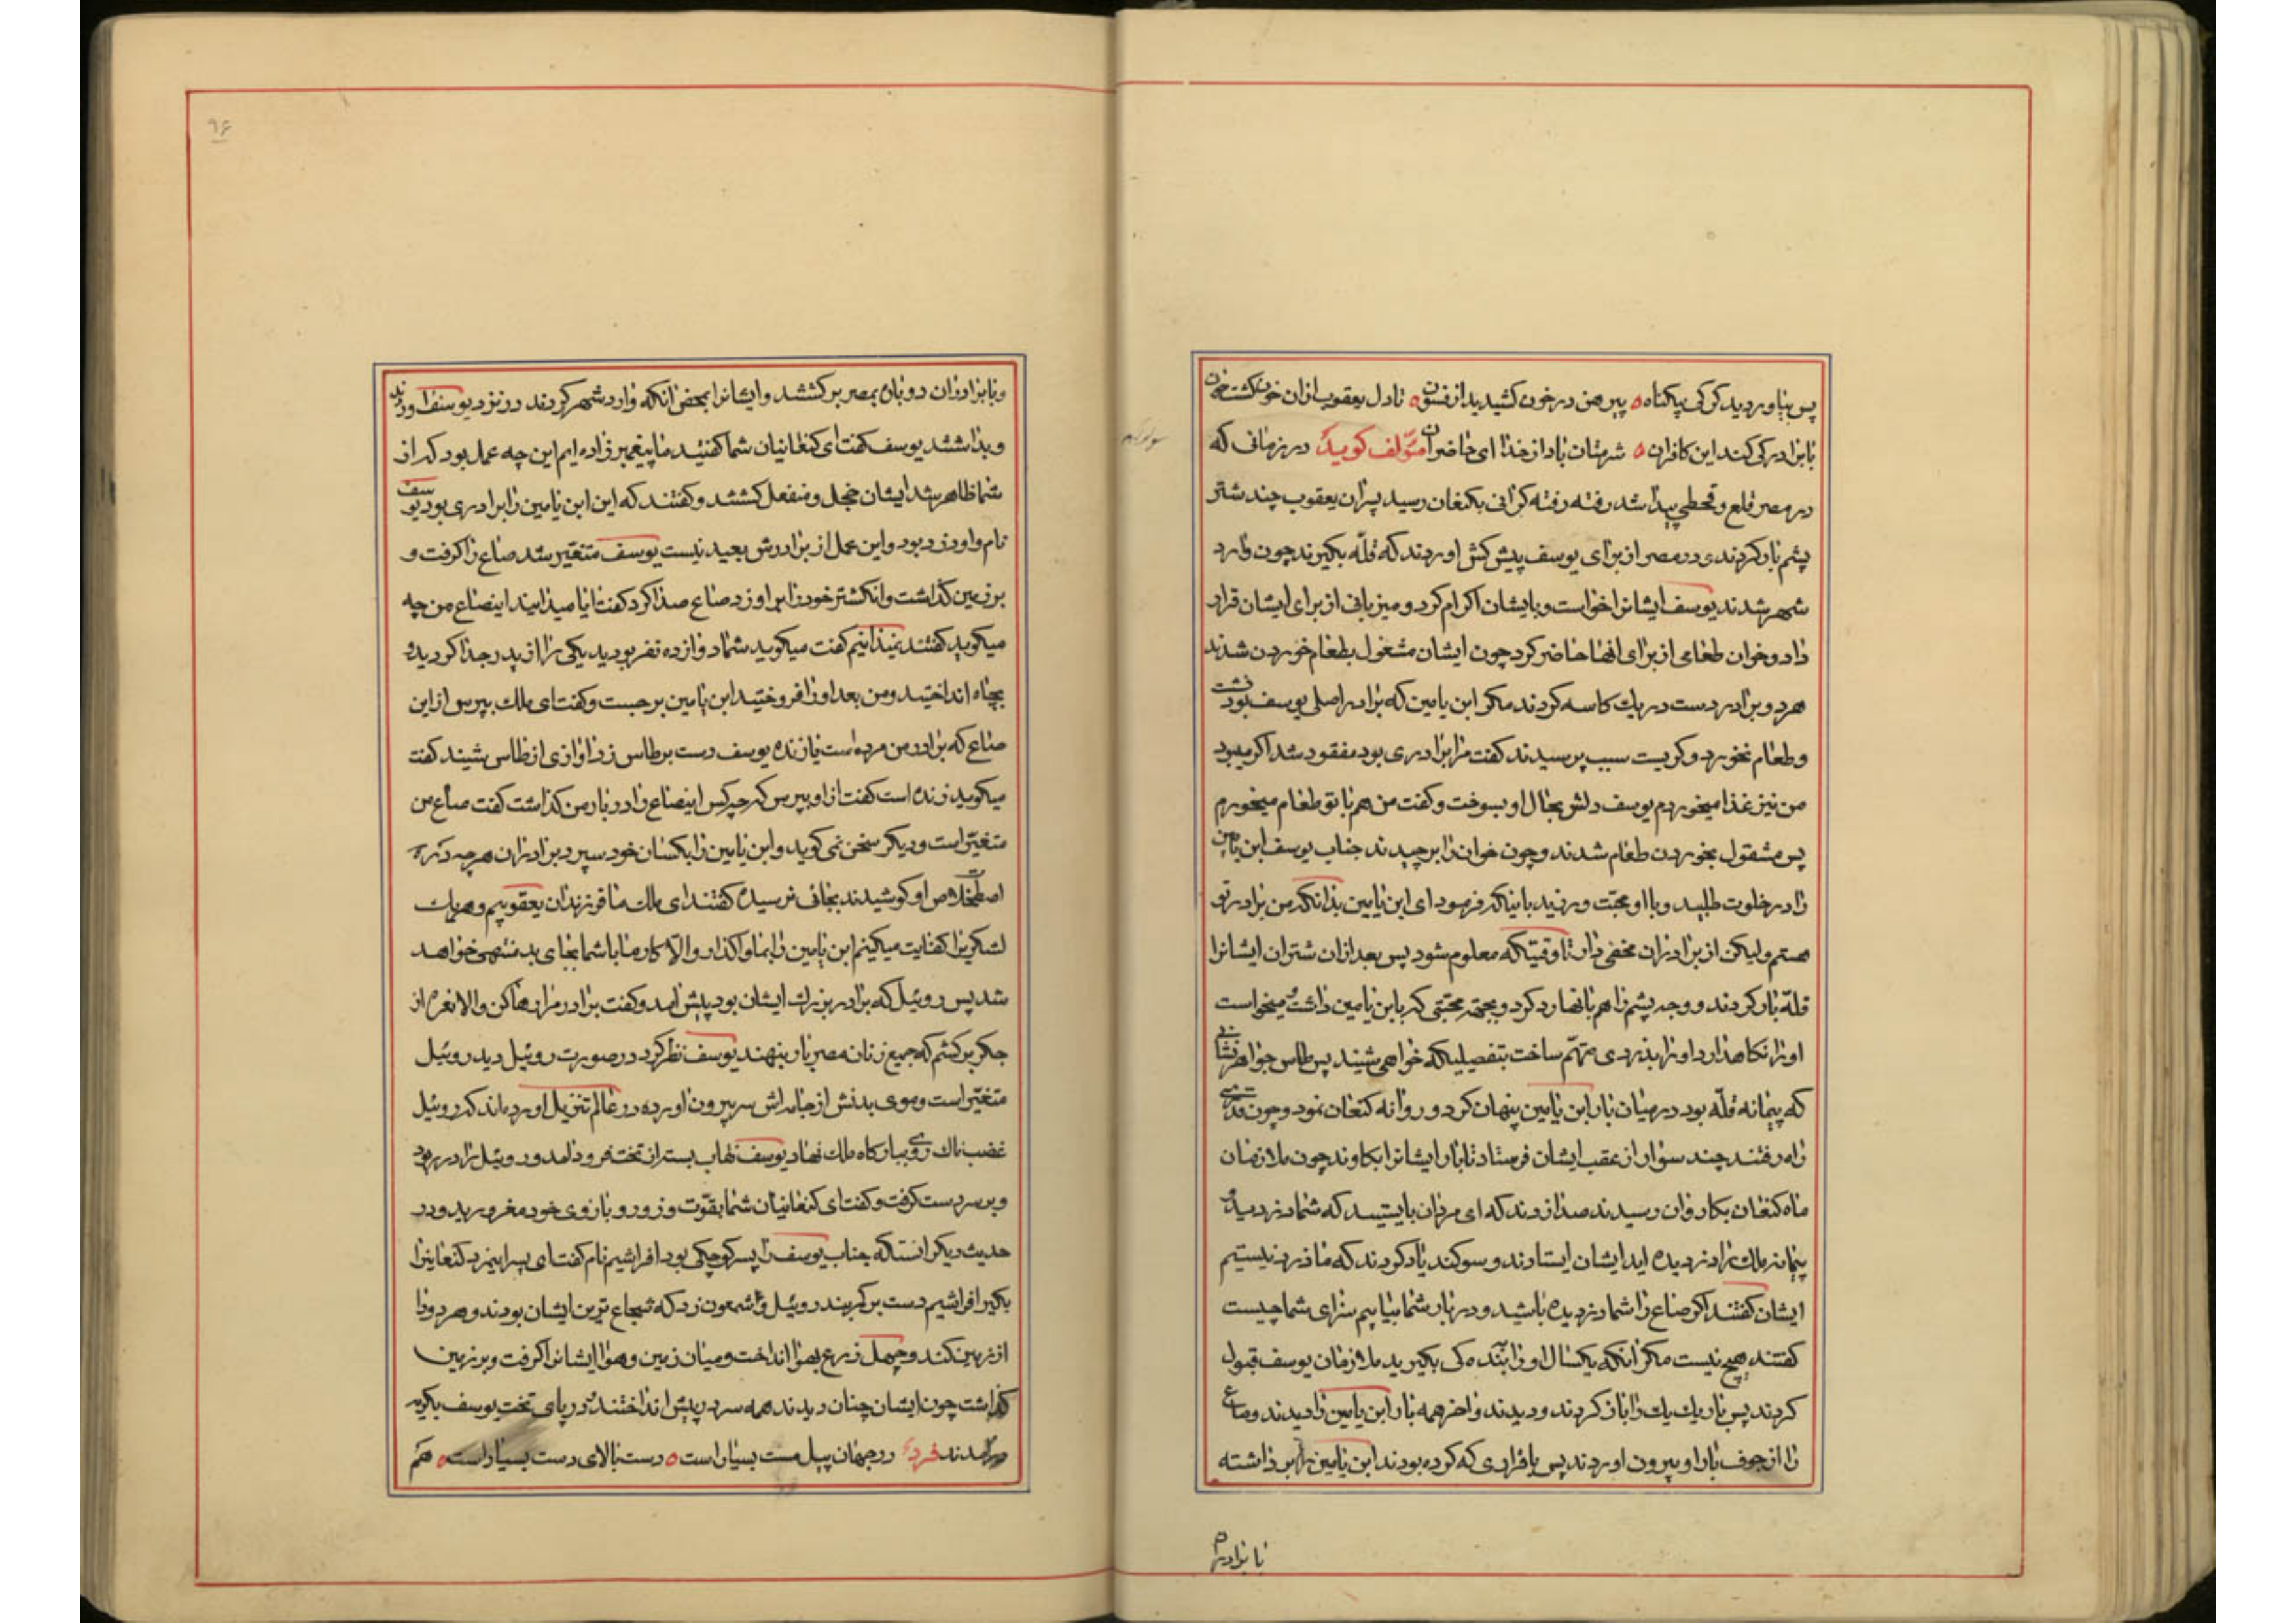 پس بیاوردید کرکی بیکناه پیرهن در خون کشیدید از فسون تا دل یعقوب ازان خون کشته خون
با برادر کی کند این کافران شرمتان باد از خدا ای حاضران مؤلف کوید در زمانی که
در مصر و قحطی پیدا شد رفته رفته کرانی بکنعان رسید پسران یعقوب چند شتر
پشم بار کردند و در مصر از برای یوسف پیش کش اوردند که قله بکیرند چون وارد
شهر شدند یوسف ایشانرا خواست و بایشان اکرام کرد و میزبانی از برای ایشان قرار
داد و خوان طعامی از برای انها حاضر کرد چون ایشان مشغول بطعام خوردن شدند
هر دو برادر دست در یک کاسه کردند مکر ابن یامین که برادر اصلی یوسف بود
و طعام نخورد و کریست سبب پرسیدند کفت مرا برادری بود مفقود شد اکر میبود
من نیز غذا میخوردم یوسف دلش بحال او بسوخت و کفت من هم با تو طعام میخورم
پس مشقول بخوردن طعام شدند و چون خوان را برچیدند جناب یوسف ابن یامین
را در خلوت طلبید و با او محبت ورزید بانیکه فرمود ای ابن یامین بدانکه من برادر تو
هستم ولیکن از برادران مخفی دار تا وقتیکه معلوم شود پس بعد ازان شتران ایشانرا
قله بار کردند و وجه پشم را هم بانها رد کرد و بجهته محبتی که بابن یامین داشت میخواست
اورا نکاهدارد اورا بدزدی متهم ساخت بتفصیلیکه خواهی شنید پس طاس جواهر نشانی
که پیمانه قله بود در میان بار ابن یامین پنهان کرد و روانه کنعان نمود و چون قدری
راه رفتند چند سوار از عقب ایشان فرستاد تا بار ایشانرا بکاوند چون ملازمان
ماه کنعان بکاروان رسیدند صدا زدند که ای مردان بایستید که شما دزدید و
پیمانه ملک را دزدیده اید ایشان ایستادند و سوکند یاد کردند که ما دزد نیستیم
ایشان کفتند اکر صاع را شما دزدیده باشید و در بار شما بیابیم سزای شما چیست
کفتند هیچ نیست مکر آنکه یکسال او را بنده کی بکیرید ملازمان یوسف قبول
کردند پس بار یک یک را باز کردند و دیدند واخر همه بار ابن یامین را دیدند و صاع
را از جوف بار او بیرون اوردند پس باقراری که کرده بودند ابن یامین را برداشته
با برادران
۹۶
و با برادران دوباره بمصر برکشتند و ایشانرا بمحض انکه وارد شهر کردند در نزد یوسف اوردند
و بداشتند یوسف کفت ای کنعانیان شما کفتید ما پیغمبر زاده ایم این چه عمل بود که از
شما ظاهر شد ایشان خجل و منفعل کشتند و کفتند که این ابن یامین را برادری بود یوسف
نام و او دزد بود و این عمل از برادرش بعید نیست یوسف متغیر شد صاع را کرفت و
بر زمین کذاشت و انکشتر خود را بر او زد صاع صدا کرد کفت ایا میدانید اینصاع من چه
میکوید کفتند نمیدانیم کفت میکوید شما دوازده نفر بودید یکی را از پدر جدا کردید و
بچاه انداختید و من بعد او را فروختید ابن یامین برجست و کفت ای ملک بپرس از این
صاع که برادر من مرده است یا زنده یوسف دست بر طاس زد اوازی از طاس بشنید کفت
میکوید زنده است کفت از او بپرس که چه کس اینصاع را در بار من کذاشت کفت صاع من
متغیر است و دیکر سخن نمی کوید و ابن یامین را بکسان خود سپرد برادران هر چه در
استخلاص او کوشیدند بجائی نرسیده کفتند ای ملک ما فرزندان یعقوبیم و هر یک
لشکریرا کفایت میکینم ابن یامین را بما واکذار والا کار ما با شما بجای بد منتهی خواهد
شد پس روئیل که برادر بزرک ایشان بود پیش آمد و کفت برادر مرا رها کن والا نعره از
جکر برکشم که جمیع زنان مصر بار بنهند یوسف نظر کرد در صورت روئیل دید روئیل
متغیر است و موی بدنش از جامه اش سر بیرون اورده در عالم تنزیل اورده اند که روئیل
غضب ناک روی ببارکاه ملک نهاد یوسف نقاب بست از تخت فرود آمد و روئیل را در ربود
و بر سر دست کرفت و کفت ای کنعانیان شما بقوت و زور و بازوی خود مغرورید و در
حدیث دیکر انستکه جناب یوسف را پسر کوچکی بود افراشیم نام کفت ای پسر اینمرد کنعانیرا
بکیر افراشیم دست بر کربند روئیل و شمعون زد که شجاع ترین ایشان بودند و هر دو را
از زمین کند و چهل زرع بهوا انداخت و میان زمین و هوا ایشانرا کرفت و بر زمین
کذاشت چون ایشان چنان دیدند همه سر در پیش انداختند و در پای تخت یوسف بکریه
درآمدند فرد در جهان پیل مست بسیار است دست بالای دست بسیار است هم